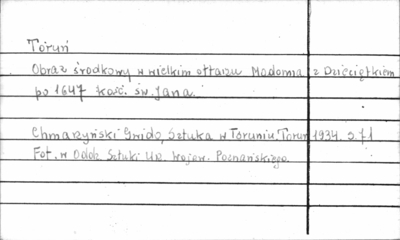 Toruń
Obraz środkowy w wielkim ołtarzu Madonna z Dzieciątkiem
po 1647 kość. św. Jana.
Chmarzyński Gwido, Sztuka w Toruniu. Toruń 1934. s. 71
Fot. w Oddz. Sztuki Urz. Wojew. Poznańskiego.